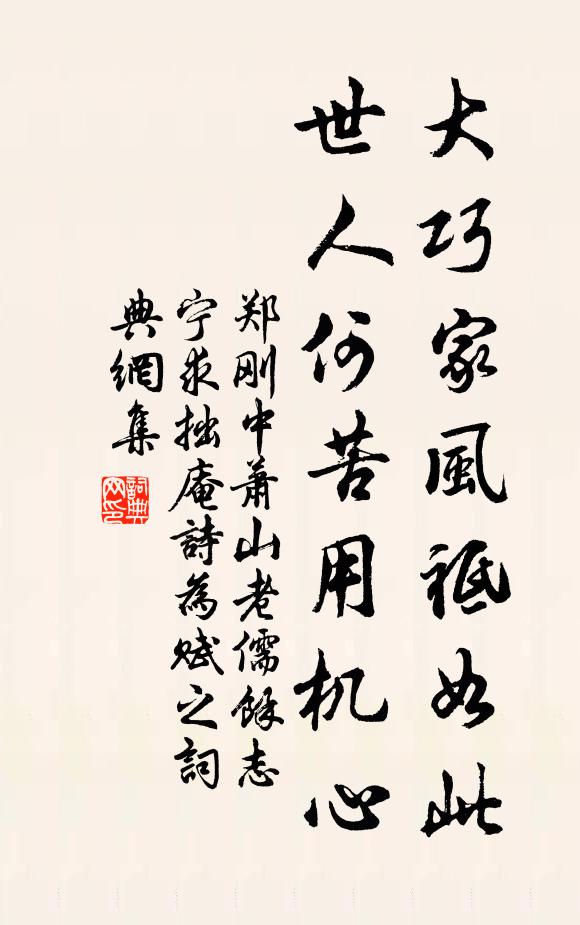 大巧家風祗如此
世人何苦用机心
郑刚中萧山老儒餘志
宁求拙庵詩為赋之詞
典網集
詞典网印